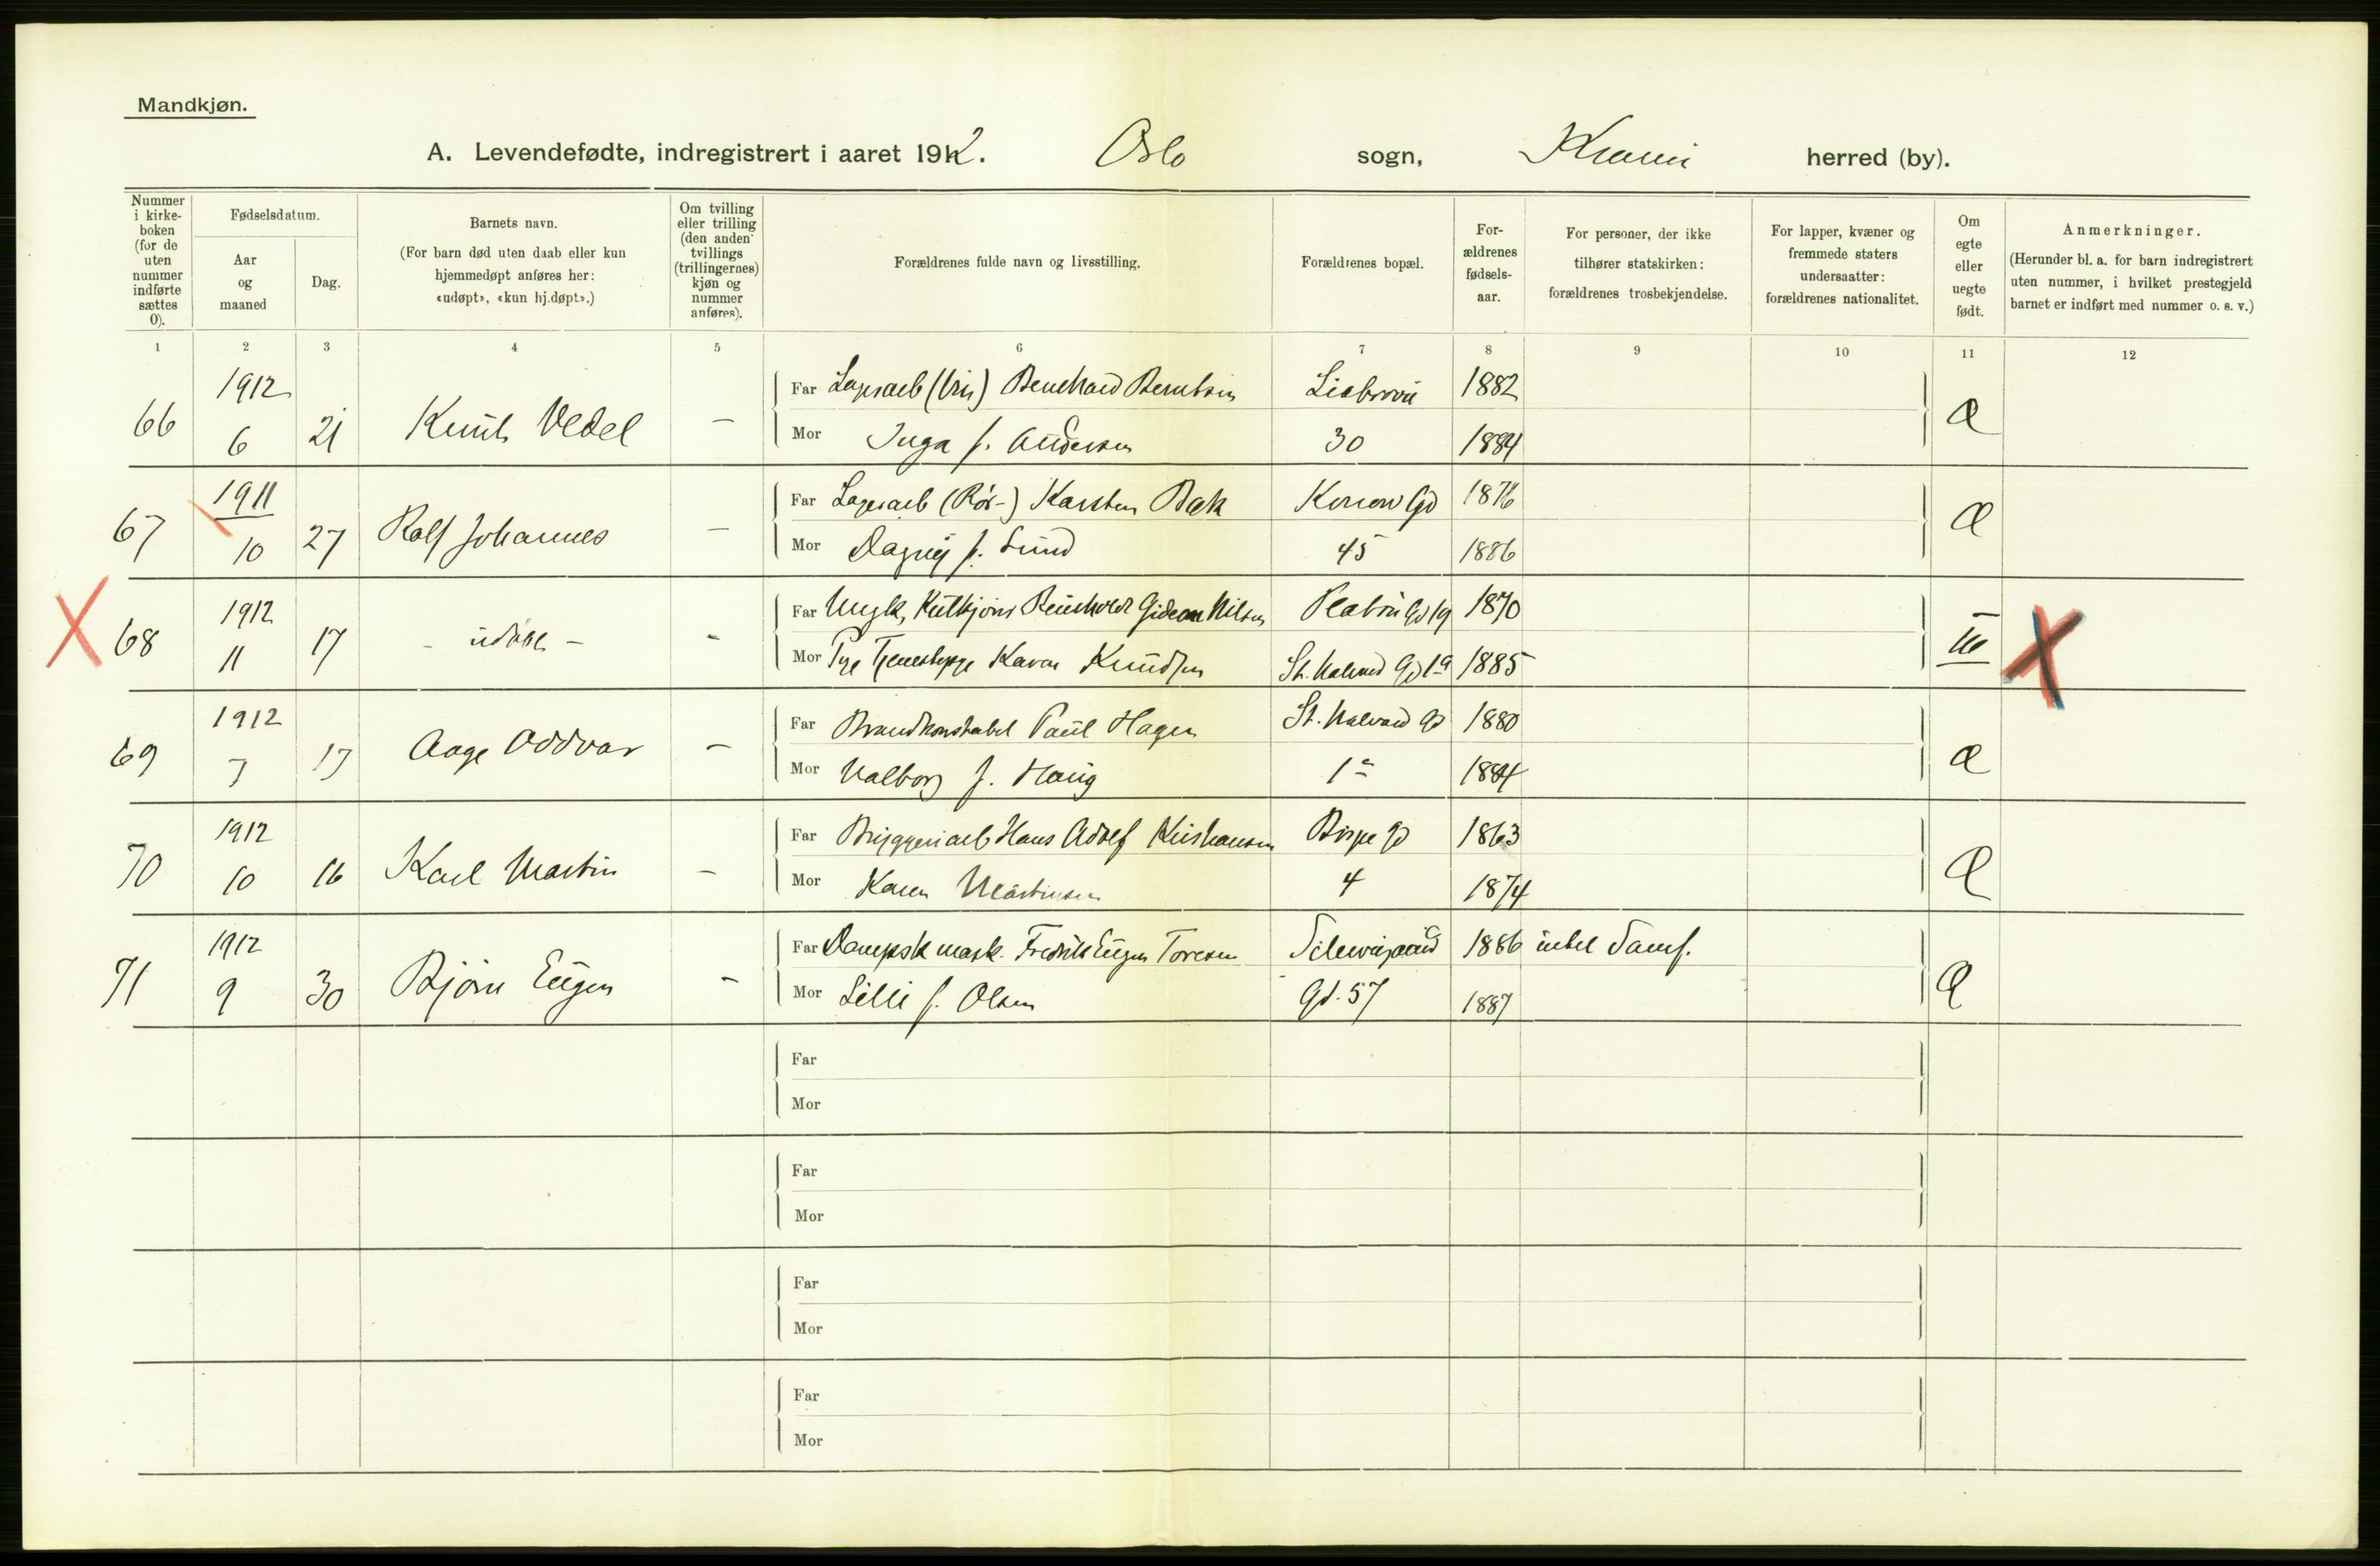 Mandkjøn.
A. Levendefødte, indregistrert i aaret 1912. Oslo sogn, Kra herred (by).
Nummer i kirke- boken (for de uten nummer indførte sættes 0).
Fødselsdatum.
Aar og maaned
Dag.
Barnets navn.
(For barn død uten daab eller kun hjemmedøpt anføres her: «udøpt», «kun hj.døpt».)
Om tvilling eller trilling (den anden tvillings (trillingernes) kjøn og nummer anføres).
Forældrenes fulde navn og livsstilling.
Forældrenes bopæl.
For- ældrenes fødsels- aar.
For personer, der ikke tilhører statskirken: forældrenes trosbekjendelse.
For lapper, kvæner og fremmede staters undersaatter: forældrenes nationalitet.
Om egte eller uegte født.
Anmerkninger.
(Herunder bl. a. for barn indregistrert uten nummer, i hvilket prestegjeld barnet er indført med nummer o. s. v.)
1 2 3 4 5 6 7 8 9 10 11 12
1912 Far Lagerarb Bernhard Berntsen 1882
66 6 21 Knut Vedel – Mor Inga f. Andersen 30 1884 Æ
1911 Far Lagerarb (Rør-) Karsten Bæk Gd 1876
67 10 27 Rolf Johannes – Mor Dagny f. Lund 45 1886 Æ
1912 Far Ungk, Reinholdt Gideon Nilsen Platou Gd 19 1870
68 11 17 – udøbt – - Mor Pige Karen Knudsen St. Halvard Gd 1a 1885 III
1912 Far Brandkonstabel Paul Hagen St. Halvard Gd 1880
69 7 17 Aage Oddvar – Mor Valborg f. Haug 1a 1884 Æ
1912 Far Bryggeriarb Hans Adolf Kristiansen Bispe Gd 1863
70 10 16 Karl Martin – Mor Karen Martinsen 4 1874 Æ
1912 Far Dampsk mask. Fredrik Eugen Toresen Schweigaard 1886 intet Samf.
71 9 30 Bjørn Eugen – Mor Lilli f. Olsen Gd. 57 1887 Æ
Far
Mor
Far
Mor
Far
Mor
Far
Mor